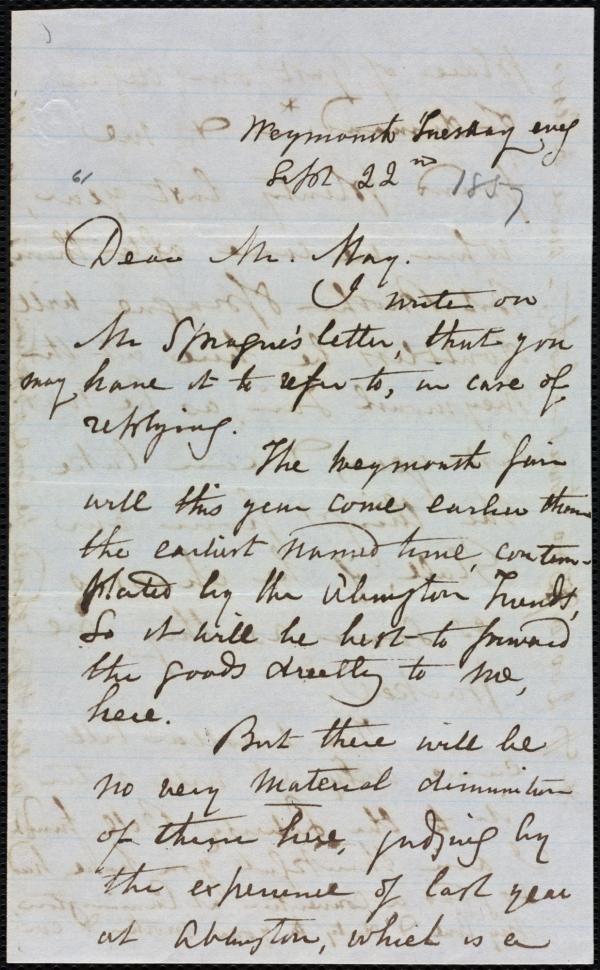 Weymouth Tuesday eve'g
Sept 22nd 1857.
Dear Mr. May.
I write on
Mr Sprague's letter, that you
may have it to refer to, in case of
replying.
The Weymouth fair
will this year come earlier than
the earliest named time contem-
plated by the Abington Friends,
So it will be best to forward
the goods directly to me,
here.
But there will be
no very material diminution
of them here, judging by
the experience of last year
at Abington, which is a